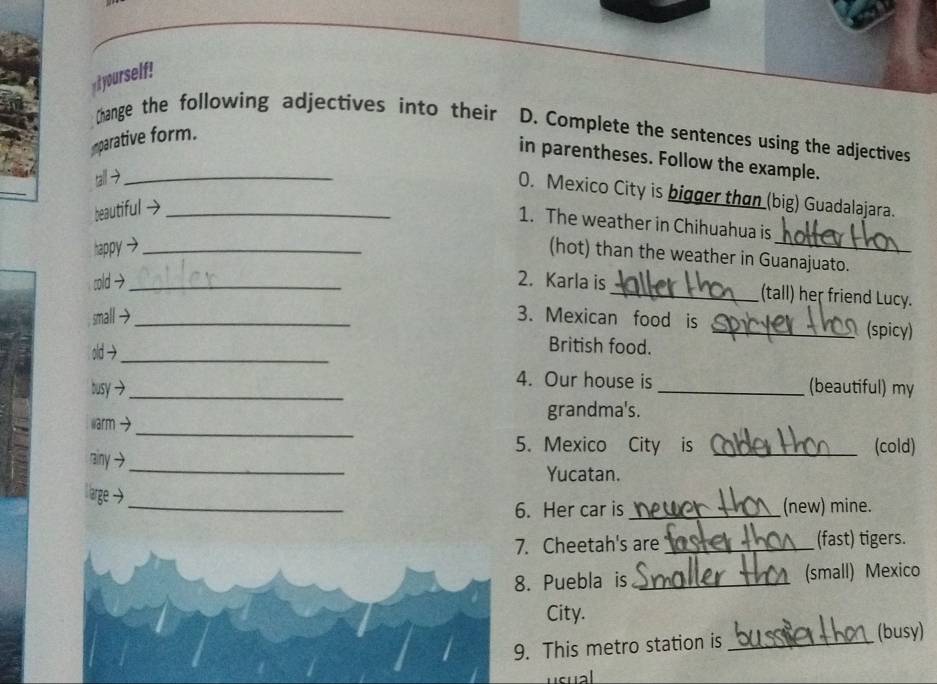 it yourself!
Change the following adjectives into their
comparative form.
tall →
beautiful →
happy →
cold → colder
small →
old →
busy →
warm →
rainy →
large →
D. Complete the sentences using the adjectives
in parentheses. Follow the example.
0. Mexico City is bigger than (big) Guadalajara.
1. The weather in Chihuahua is hotter than
(hot) than the weather in Guanajuato.
2. Karla is taller than (tall) her friend Lucy.
3. Mexican food is spicyer than (spicy)
British food.
4. Our house is (beautiful) my
grandma's.
5. Mexico City is colder than (cold)
Yucatan.
6. Her car is newer than (new) mine.
7. Cheetah's are faster than (fast) tigers.
8. Puebla is Smaller than (small) Mexico
City.
9. This metro station is than (busy)
usual